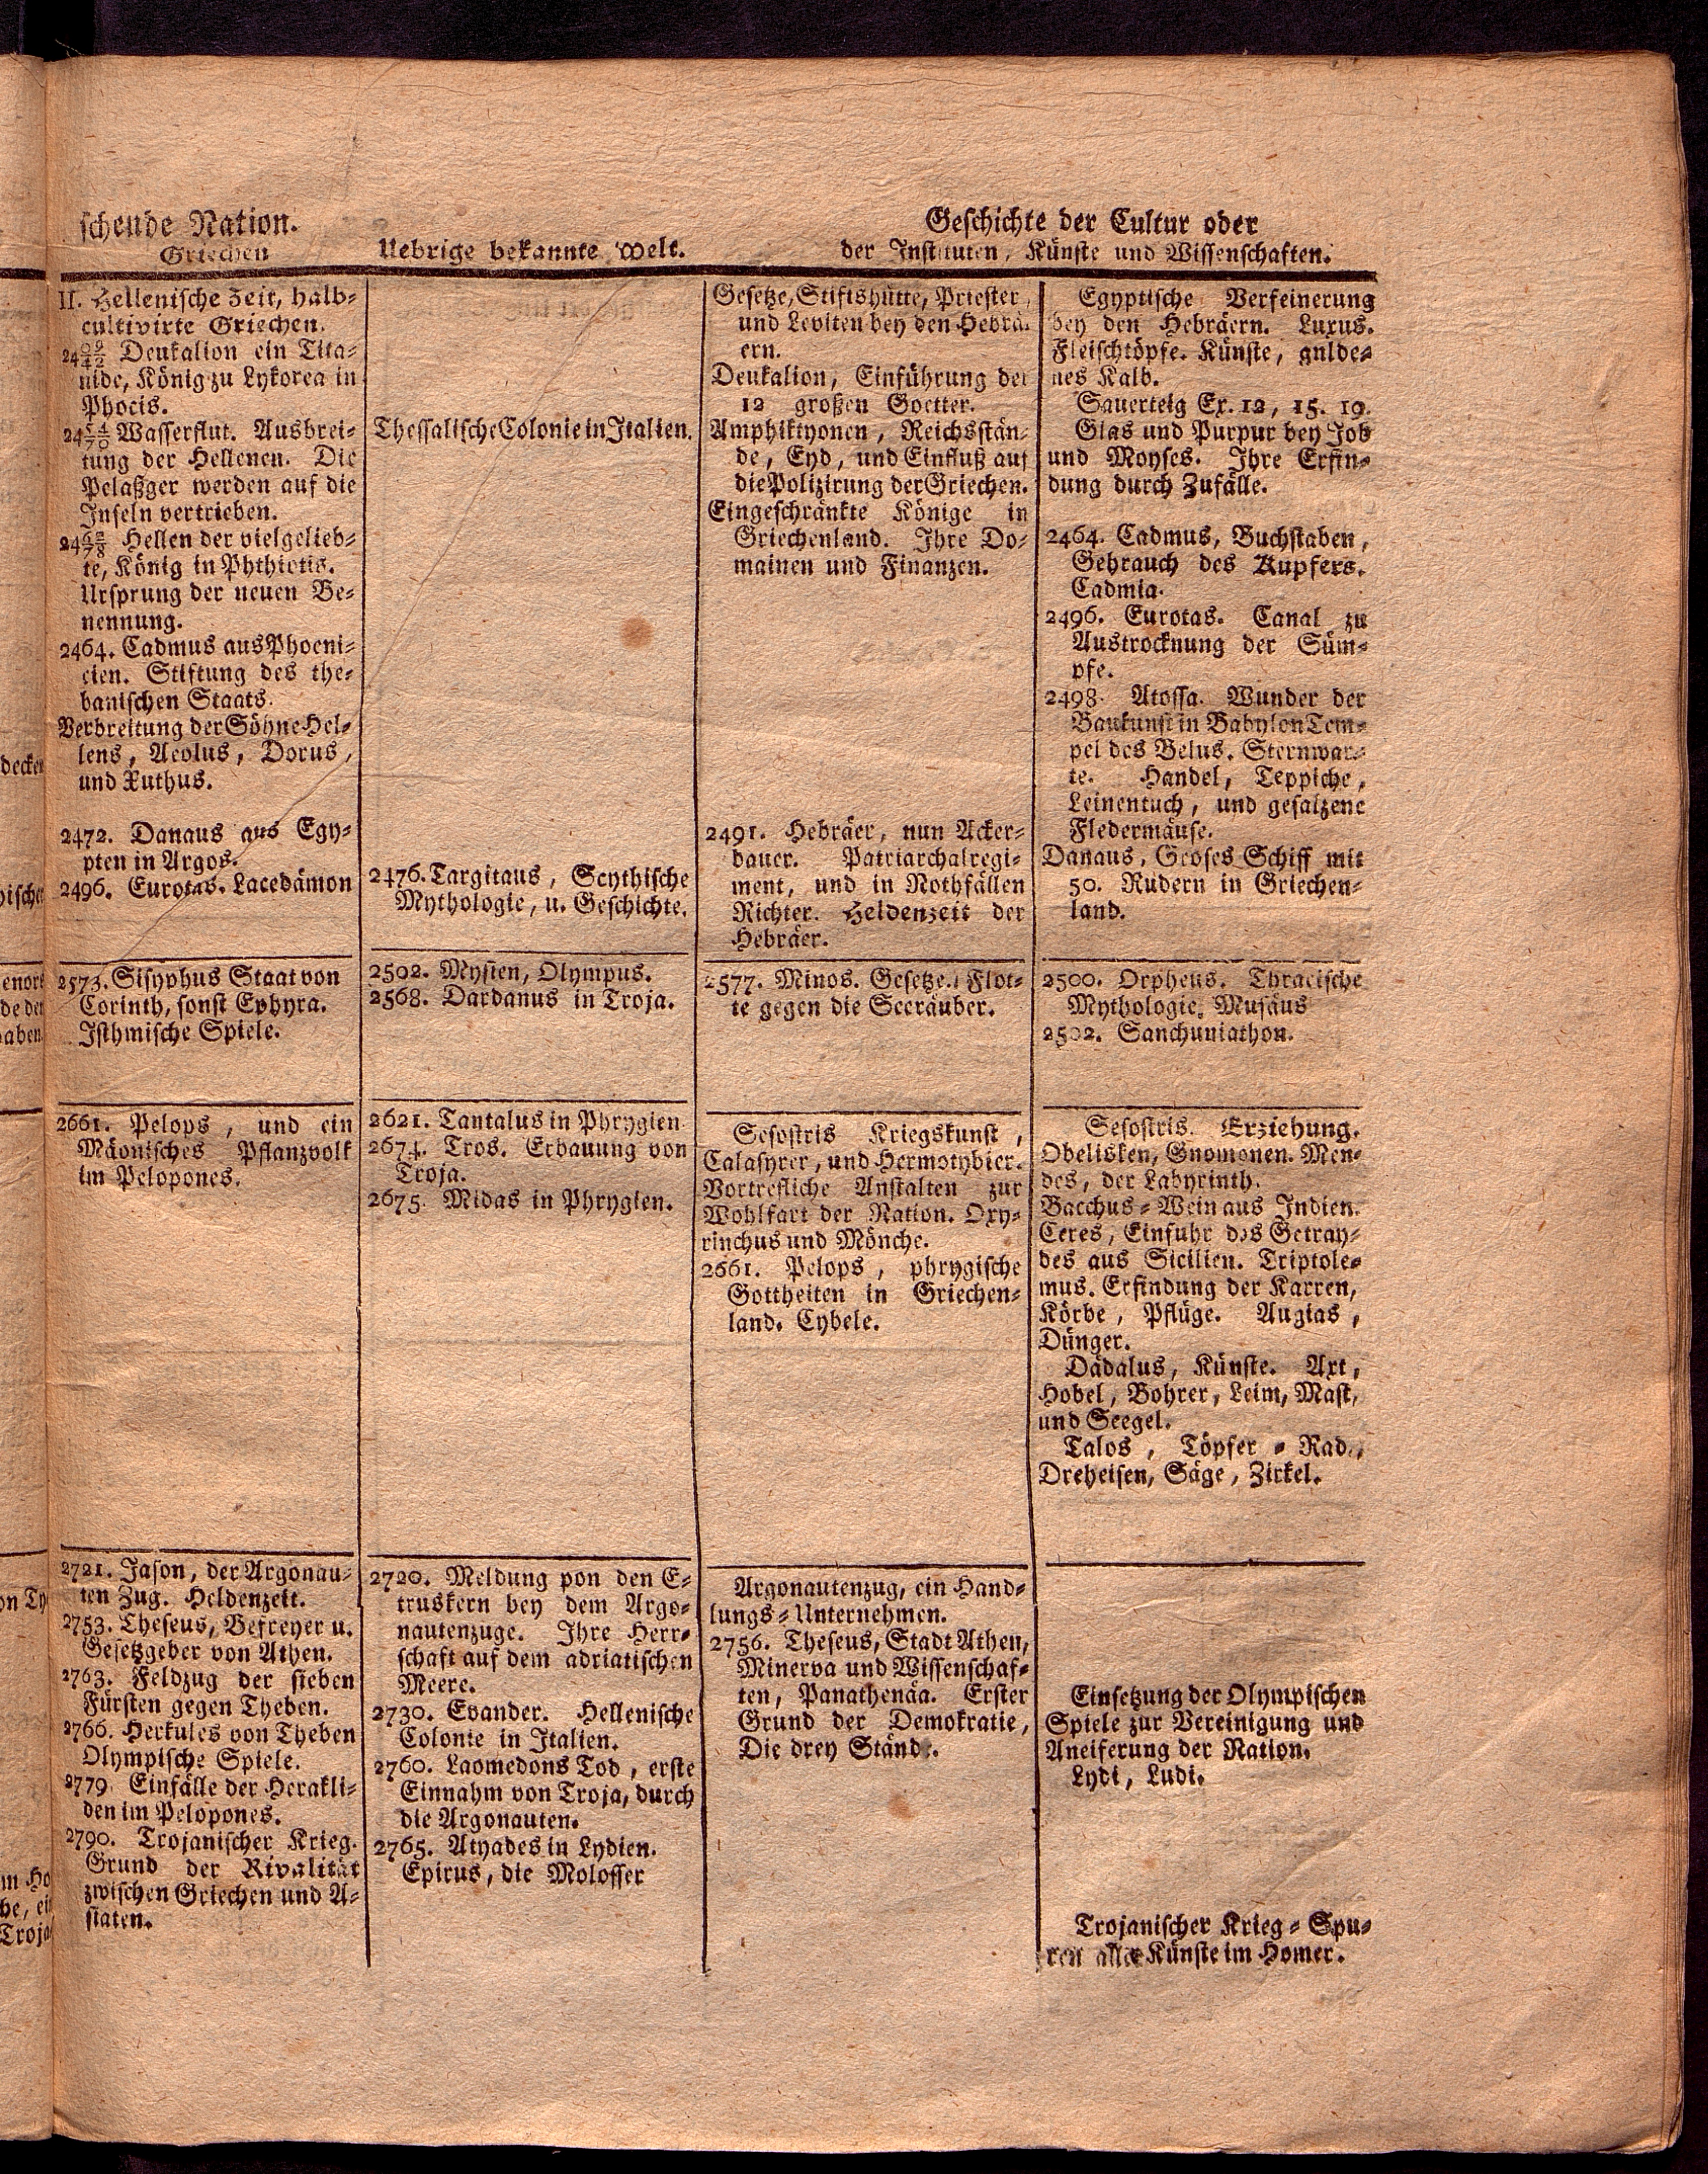 schende Nation.
Griechen
Uebrige bekannte Welt.
Geschichte der Cultur oder
der Instituten, Künste und Wissenschaften.
II. Hellenische Zeit, halb-
cultivirte Griechen.
Deukalion ein Tita-
nide, König zu Lykorea in
Phocis.
Wasserflut. Ausbrei-
tung der Hellenen. Die
Pelaßger werden auf die
Inseln vertrieben.
Hellen der vielgelieb-
te, König in Phthiotis.
Ursprung der neuen Be-
nennung.
2464. Cadmus aus Phoeni-
cien. Stiftung des the-
banischen Staats.
Verbreitung der Söhne Hel-
lens, Aeolus, Dorus,
und Xuthus.
2472. Danaus aus Egy-
pten in Argos.
2496. Eurotas. Lacedämon
2573. Sisyphus Staat von
Corinth, sonst Ephyra.
Isthmische Spiele.
2661. Pelops, und ein
Mäonisches Pflanzvolk
im Pelopones.
2721. Jason, der Argonau-
ten Zug. Heldenzeit.
2753. Theseus, Befreyer u.
Gesetzgeber von Athen.
2763. Feldzug der sieben
Fürsten gegen Theben.
2766. Herkules von Theben
Olympische Spiele.
2779 Einfälle der Herakli-
den im Pelopones.
2790. Trojanischer Krieg.
Grund der Rivalität
zwischen Griechen und A-
siaten.
Thessalische Colonie in Italien.
2476. Targitaus, Scythische
Mythologie, u. Geschichte.
2502. Mysien, Olympus.
2568. Dardanus in Troja.
2621. Tantalus in Phrygien
2674. Tros. Erbauung von
Troja.
2675. Midas in Phrygien.
2720. Meldung pon den E-
truskern bey dem Argo-
nautenzuge. Ihre Herr-
schaft auf dem adriatischen
Meere.
2730. Evander. Hellenische
Colonie in Italien.
2760. Laomedons Tod, erste
Einnahm von Troja, durch
die Argonauten.
2765. Atyades in Lydien.
Epirus, die Molosser
Gesetze, Stiftshütte, Priester,
und Leviten bey den Hebrä-
ern.
Deukalion, Einführung der
12 großen Goetter.
Amphiktyonen, Reichsstän-
de, Eyd, und Einfluß auf
die Polizirung der Griechen.
Eingeschränkte Könige in
Griechenland. Ihre Do-
mainen und Finanzen.
2491. Hebräer, nun Acker-
bauer. Patriarchalregi-
ment, und in Nothfällen
Richter. Heldenzeit der
Hebräer.
2577. Minos. Gesetze. Flot-
te gegen die Seeräuber.
Sesostris Kriegskunst,
Calasyrer, und Hermotybier.
Vortrefliche Anstalten zur
Wohlfart der Nation. Oxy-
rinchus und Mönche.
2661. Pelops, phrygische
Gottheiten in Griechen-
land. Cybele.
Argonautenzug, ein Hand-
lungs-Unternehmen.
2756. Theseus, Stadt Athen,
Minerva und Wissenschaf-
ten, Panathenäa. Erster
Grund der Demokratie,
Die drey Stände.
Egyptische Verfeinerung
bey den Hebräern. Luxus.
Fleischtöpfe. Künste, gulde-
nes Kalb.
Sauerteig Ex. 12, 15. 19.
Glas und Purpur bey Job
und Moyses. Ihre Erfin-
dung durch Zufälle.
2464. Cadmus, Buchstaben,
Gebrauch des Kupfers.
Cadmia.
2496. Eurotas. Canal zu
Austrocknung der Süm-
pfe.
2498. Atossa. Wunder der
Baukunst in Babylon Tem-
pel des Belus. Sternwar-
te. Handel, Teppiche,
Leinentuch, und gesalzene
Fledermäuse.
Danaus, Groses Schiff mit
50. Rudern in Griechen-
land.
2500. Orpheus. Thracische
Mythologie. Musäus
2502. Sanchuniathon.
Sesostris. Erziehung.
Obelisken, Gnomonen. Men-
des, der Labyrinth.
Bacchus-Wein aus Indien.
Ceres, Einfuhr des Getray-
des aus Sicilien. Triptole-
mus. Erfindung der Karren,
Körbe, Pflüge. Augias,
Dünger.
Dädalus, Künste. Axt,
Hobel, Bohrer, Leim, Mast,
und Seegel.
Talos, Töpfer-Rad,
Dreheisen, Säge, Zirkel.
Einsetzung der Olympischen
Spiele zur Vereinigung und
Aneiferung der Nation.
Lydi, Ludi.
Trojanischer Krieg-Spu-
ren aller Künste im Homer.